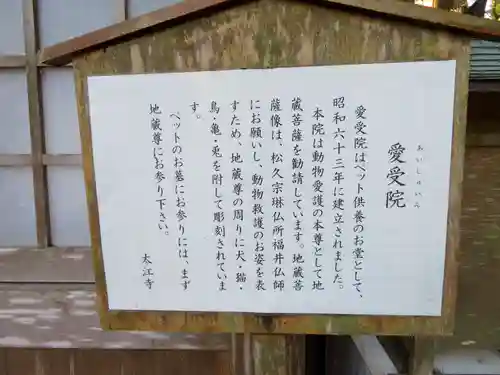 あいじゅいん
愛受院
愛受院はペット供養のお堂として、
昭和六十三年に建立されました。
本院は動物愛護の本尊として地
蔵菩薩を勧請しています。地蔵菩
薩像は、松久宗琳仏所福井仏師
にお願いし、動物救護のお姿を表
すため、地蔵尊の周りに犬・猫・
鳥・亀・兎を附して彫刻されていま
す。
ペットのお墓にお参りには、まず
地蔵尊にお参り下さい。
太江寺